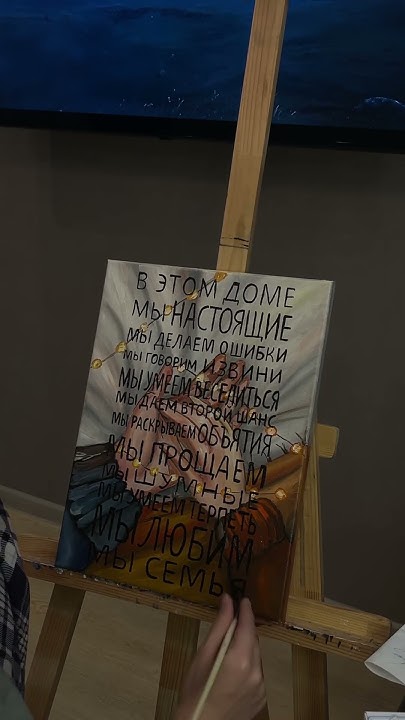 В ЭТОМ ДОМЕ
МЫ НАСТОЯЩИЕ
МЫ ДЕЛАЕМ ОШИБКИ
МЫ ГОВОРИМ ИЗВИНИ
МЫ УМЕЕМ ВЕСЕЛИТЬСЯ
МЫ ДАЁМ ВТОРОЙ ШАНС
МЫ РАСКРЫВАЕМ ОБЪЯТИЯ
МЫ ПРОЩАЕМ
МЫ ШУМНЫЕ
МЫ УМЕЕМ ТЕРПЕТЬ
МЫ ЛЮБИМ
МЫ СЕМЬЯ